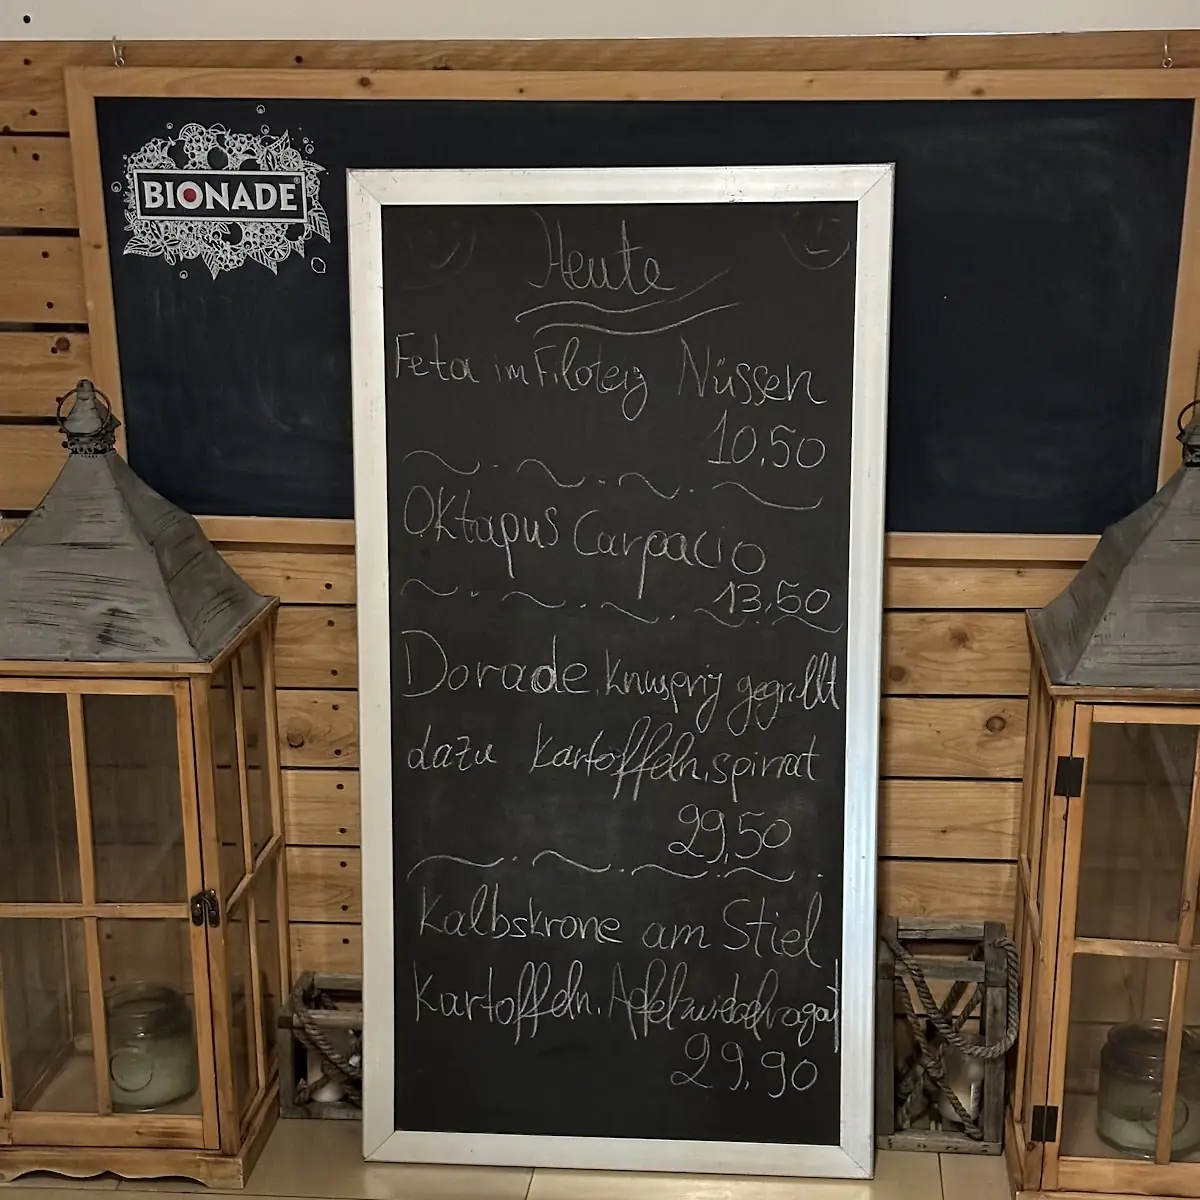 BIONADE
Heute
Feta im Filoteig Nüssen
10,50
Oktapus Carpacio
13,50
Dorade, knusprig gegrillt
dazu Kartoffeln, spinat
29,50
Kalbskrone am Stiel
Kartoffeln, Apfelzwiebelragout
29,90